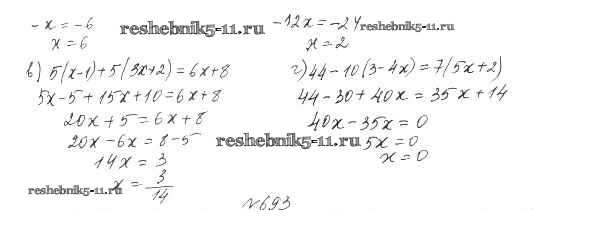 -x = -6
x = 6
reshebnik5-11.ru
-12x = -24
reshebnik5-11.ru
x = 2
в) 5(x-1)+5(3x+2)=6x+8
5x-5+15x+10=6x+8
20x+5=6x+8
20x-6x=8-5
14x=3
x = 3/14
г) 44-10(3-4x)=7(5x+2)
44-30+40x=35x+14
40x-35x=0
5x=0
x=0
reshebnik5-11.ru
reshebnik5-11.ru
№693